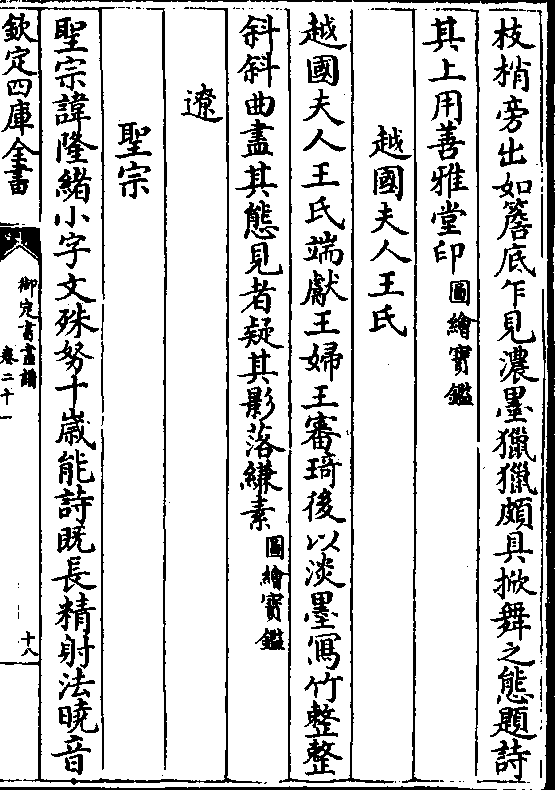 枝梢旁出如簷底乍見濃墨獵獵頗具掀舞之態題詩
其上用善雅堂印圖繪寳鑑
越國夫人王氏
越國夫人王氏端獻王婦王審琦後以淡墨寫竹整整
斜斜曲盡其態見者疑其影落縑素圖繪寳鑑
遼
聖宗
聖宗諱隆緒小字文殊努十嵗能詩既長精射法曉音
欽定四庫全書
御定書畫譜
卷二十一
十八